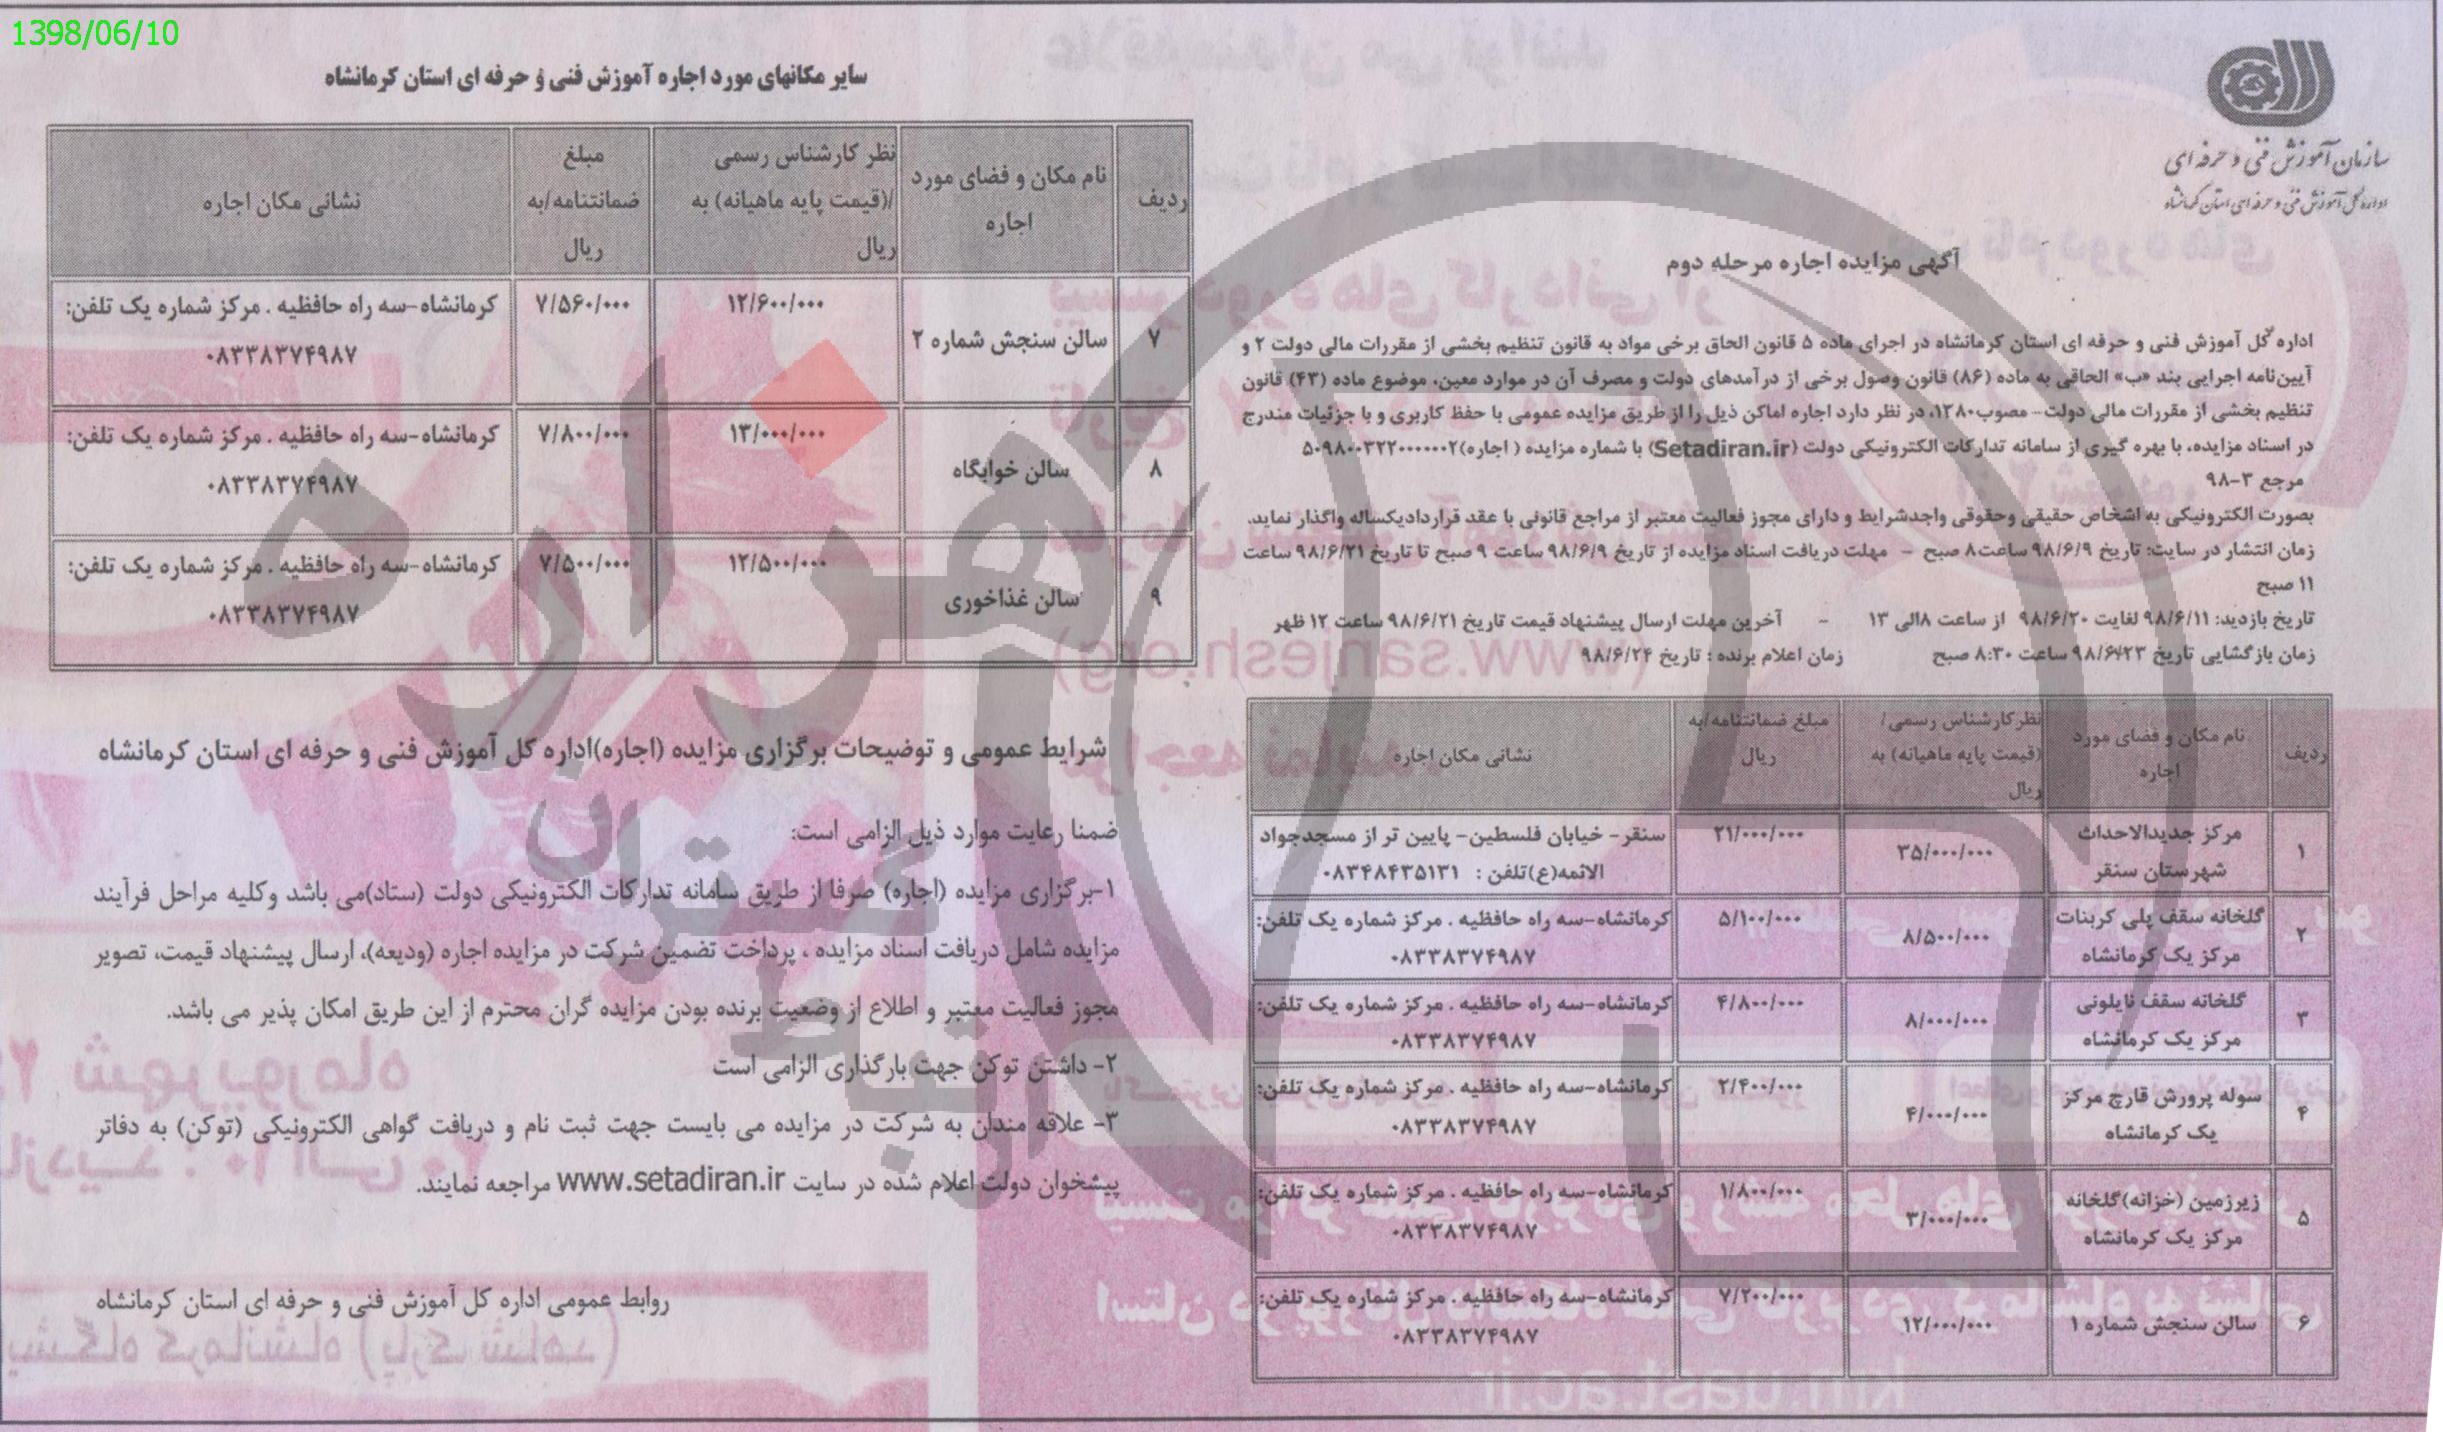 1398/06/10
سازمان آموزش فنی و حرفه ای
اداره کل آموزش فنی و حرفه ای استان کرمانشاه
آگهی مزایده اجاره مرحله دوم
اداره کل آموزش فنی و حرفه ای استان کرمانشاه در اجرای ماده ۵ قانون الحاق برخی مواد به قانون تنظیم بخشی از مقررات مالی دولت ۲ و
آیین‌نامه اجرایی بند «ب» الحاقی به ماده (۸۶) قانون وصول برخی از درآمدهای دولت و مصرف آن در موارد معین، موضوع ماده (۴۳) قانون
تنظیم بخشی از مقررات مالی دولت- مصوب۱۳۸۰، در نظر دارد اجاره اماکن ذیل را از طریق مزایده عمومی با حفظ کاربری و با جزئیات مندرج
در اسناد مزایده، با بهره گیری از سامانه تدارکات الکترونیکی دولت (Setadiran.ir) با شماره مزایده ( اجاره)۵۰۹۸۰۰۳۲۲۰۰۰۰۰۰۲
مرجع ۳-۹۸
بصورت الکترونیکی به اشخاص حقیقی وحقوقی واجدشرایط و دارای مجوز فعالیت معتبر از مراجع قانونی با عقد قراردادیکساله واگذار نماید.
زمان انتشار در سایت: تاریخ ۹۸/۶/۹ ساعت۸ صبح - مهلت دریافت اسناد مزایده از تاریخ ۹۸/۶/۹ ساعت ۹ صبح تا تاریخ ۹۸/۶/۲۱ ساعت
۱۱ صبح
تاریخ بازدید: ۹۸/۶/۱۱ لغایت ۹۸/۶/۲۰ از ساعت ۸الی ۱۳ - آخرین مهلت ارسال پیشنهاد قیمت تاریخ ۹۸/۶/۲۱ ساعت ۱۲ ظهر
زمان بازگشایی تاریخ ۹۸/۶/۲۳ ساعت ۸:۳۰ صبح زمان اعلام برنده : تاریخ ۹۸/۶/۲۴
ردیف نام مکان و فضای مورد اجاره نظر کارشناس رسمی/ (قیمت پایه ماهیانه) به ریال مبلغ ضمانتنامه/به ریال نشانی مکان اجاره
۱ مرکز جدیدالاحداث شهرستان سنقر ۳۵/۰۰۰/۰۰۰ ۲۱/۰۰۰/۰۰۰ سنقر- خیابان فلسطین- پایین تر از مسجدجواد الائمه(ع)تلفن : ۰۸۳۴۸۴۳۵۱۳۱
۲ گلخانه سقف پلی کربنات مرکز یک کرمانشاه ۸/۵۰۰/۰۰۰ ۵/۱۰۰/۰۰۰ کرمانشاه-سه راه حافظیه . مرکز شماره یک تلفن: ۰۸۳۳۸۳۷۴۹۸۷
۳ گلخانه سقف نایلونی مرکز یک کرمانشاه ۸/۰۰۰/۰۰۰ ۴/۸۰۰/۰۰۰ کرمانشاه-سه راه حافظیه . مرکز شماره یک تلفن: ۰۸۳۳۸۳۷۴۹۸۷
۴ سوله پرورش قارچ مرکز یک کرمانشاه ۴/۰۰۰/۰۰۰ ۲/۴۰۰/۰۰۰ کرمانشاه-سه راه حافظیه . مرکز شماره یک تلفن: ۰۸۳۳۸۳۷۴۹۸۷
۵ زیرزمین (خزانه)گلخانه مرکز یک کرمانشاه ۳/۰۰۰/۰۰۰ ۱/۸۰۰/۰۰۰ کرمانشاه-سه راه حافظیه . مرکز شماره یک تلفن: ۰۸۳۳۸۳۷۴۹۸۷
۶ سالن سنجش شماره ۱ ۱۲/۰۰۰/۰۰۰ ۷/۲۰۰/۰۰۰ کرمانشاه-سه راه حافظیه . مرکز شماره یک تلفن: ۰۸۳۳۸۳۷۴۹۸۷
سایر مکانهای مورد اجاره آموزش فنی و حرفه ای استان کرمانشاه
ردیف نام مکان و فضای مورد اجاره نظر کارشناس رسمی /(قیمت پایه ماهیانه) به ریال مبلغ ضمانتنامه/به ریال نشانی مکان اجاره
۷ سالن سنجش شماره ۲ ۱۲/۶۰۰/۰۰۰ ۷/۵۶۰/۰۰۰ کرمانشاه-سه راه حافظیه . مرکز شماره یک تلفن: ۰۸۳۳۸۳۷۴۹۸۷
۸ سالن خوابگاه ۱۳/۰۰۰/۰۰۰ ۷/۸۰۰/۰۰۰ کرمانشاه-سه راه حافظیه . مرکز شماره یک تلفن: ۰۸۳۳۸۳۷۴۹۸۷
۹ سالن غذاخوری ۱۲/۵۰۰/۰۰۰ ۷/۵۰۰/۰۰۰ کرمانشاه-سه راه حافظیه . مرکز شماره یک تلفن: ۰۸۳۳۸۳۷۴۹۸۷
شرایط عمومی و توضیحات برگزاری مزایده (اجاره)اداره کل آموزش فنی و حرفه ای استان کرمانشاه
ضمنا رعایت موارد ذیل الزامی است:
۱-برگزاری مزایده (اجاره) صرفا از طریق سامانه تدارکات الکترونیکی دولت (ستاد)می باشد وکلیه مراحل فرآیند
مزایده شامل دریافت اسناد مزایده ، پرداخت تضمین شرکت در مزایده اجاره (ودیعه)، ارسال پیشنهاد قیمت، تصویر
مجوز فعالیت معتبر و اطلاع از وضعیت برنده بودن مزایده گران محترم از این طریق امکان پذیر می باشد.
۲- داشتن توکن جهت بارگذاری الزامی است
۳- علاقه مندان به شرکت در مزایده می بایست جهت ثبت نام و دریافت گواهی الکترونیکی (توکن) به دفاتر
پیشخوان دولت اعلام شده در سایت www.setadiran.ir مراجعه نمایند.
روابط عمومی اداره کل آموزش فنی و حرفه ای استان کرمانشاه